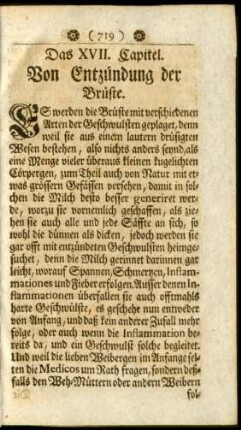 ( 719 )
Das XVII. Capitel.
Von Entzündung der
Brüste.
ES werden die Brüste mit verschiedenen
Arten der Geschwulsten geplaget, denn
weil sie aus einem lautern drüsigten
Wesen bestehen, also nichts anders seynd, als
eine Menge vieler überaus kleinen kugelichten
Cörpergen, zum Theil auch von Natur mit et-
was grössern Gefässen versehen, damit in sol-
chen die Milch desto besser generiret wer-
de, worzu sie vornemlich geschaffen, als zie-
hen sie auch alle und jede Säffte an sich, so-
wohl die dünnen als dicken, jedoch werden sie
gar offt mit entzündeten Geschwulsten heimge-
suchet, denn die Milch gerinnet darinnen gar
leicht, worauf Spannen, Schmertzen, Inflam-
mationes und Fieber erfolgen. Ausser denen In-
flammationen überfallen sie auch offtmahls
harte Geschwülste, es geschehe nun entweder
von Anfang, und daß kein anderer Zufall mehr
folge, oder auch wenn die Inflammation be-
reits da, und ein Geschwulst solche begleitet.
Und weil die lieben Weibergen im Anfange sel-
ten die Medicos um Rath fragen, sondern deß-
falls den Weh-Müttern oder andern Weibern
fol-